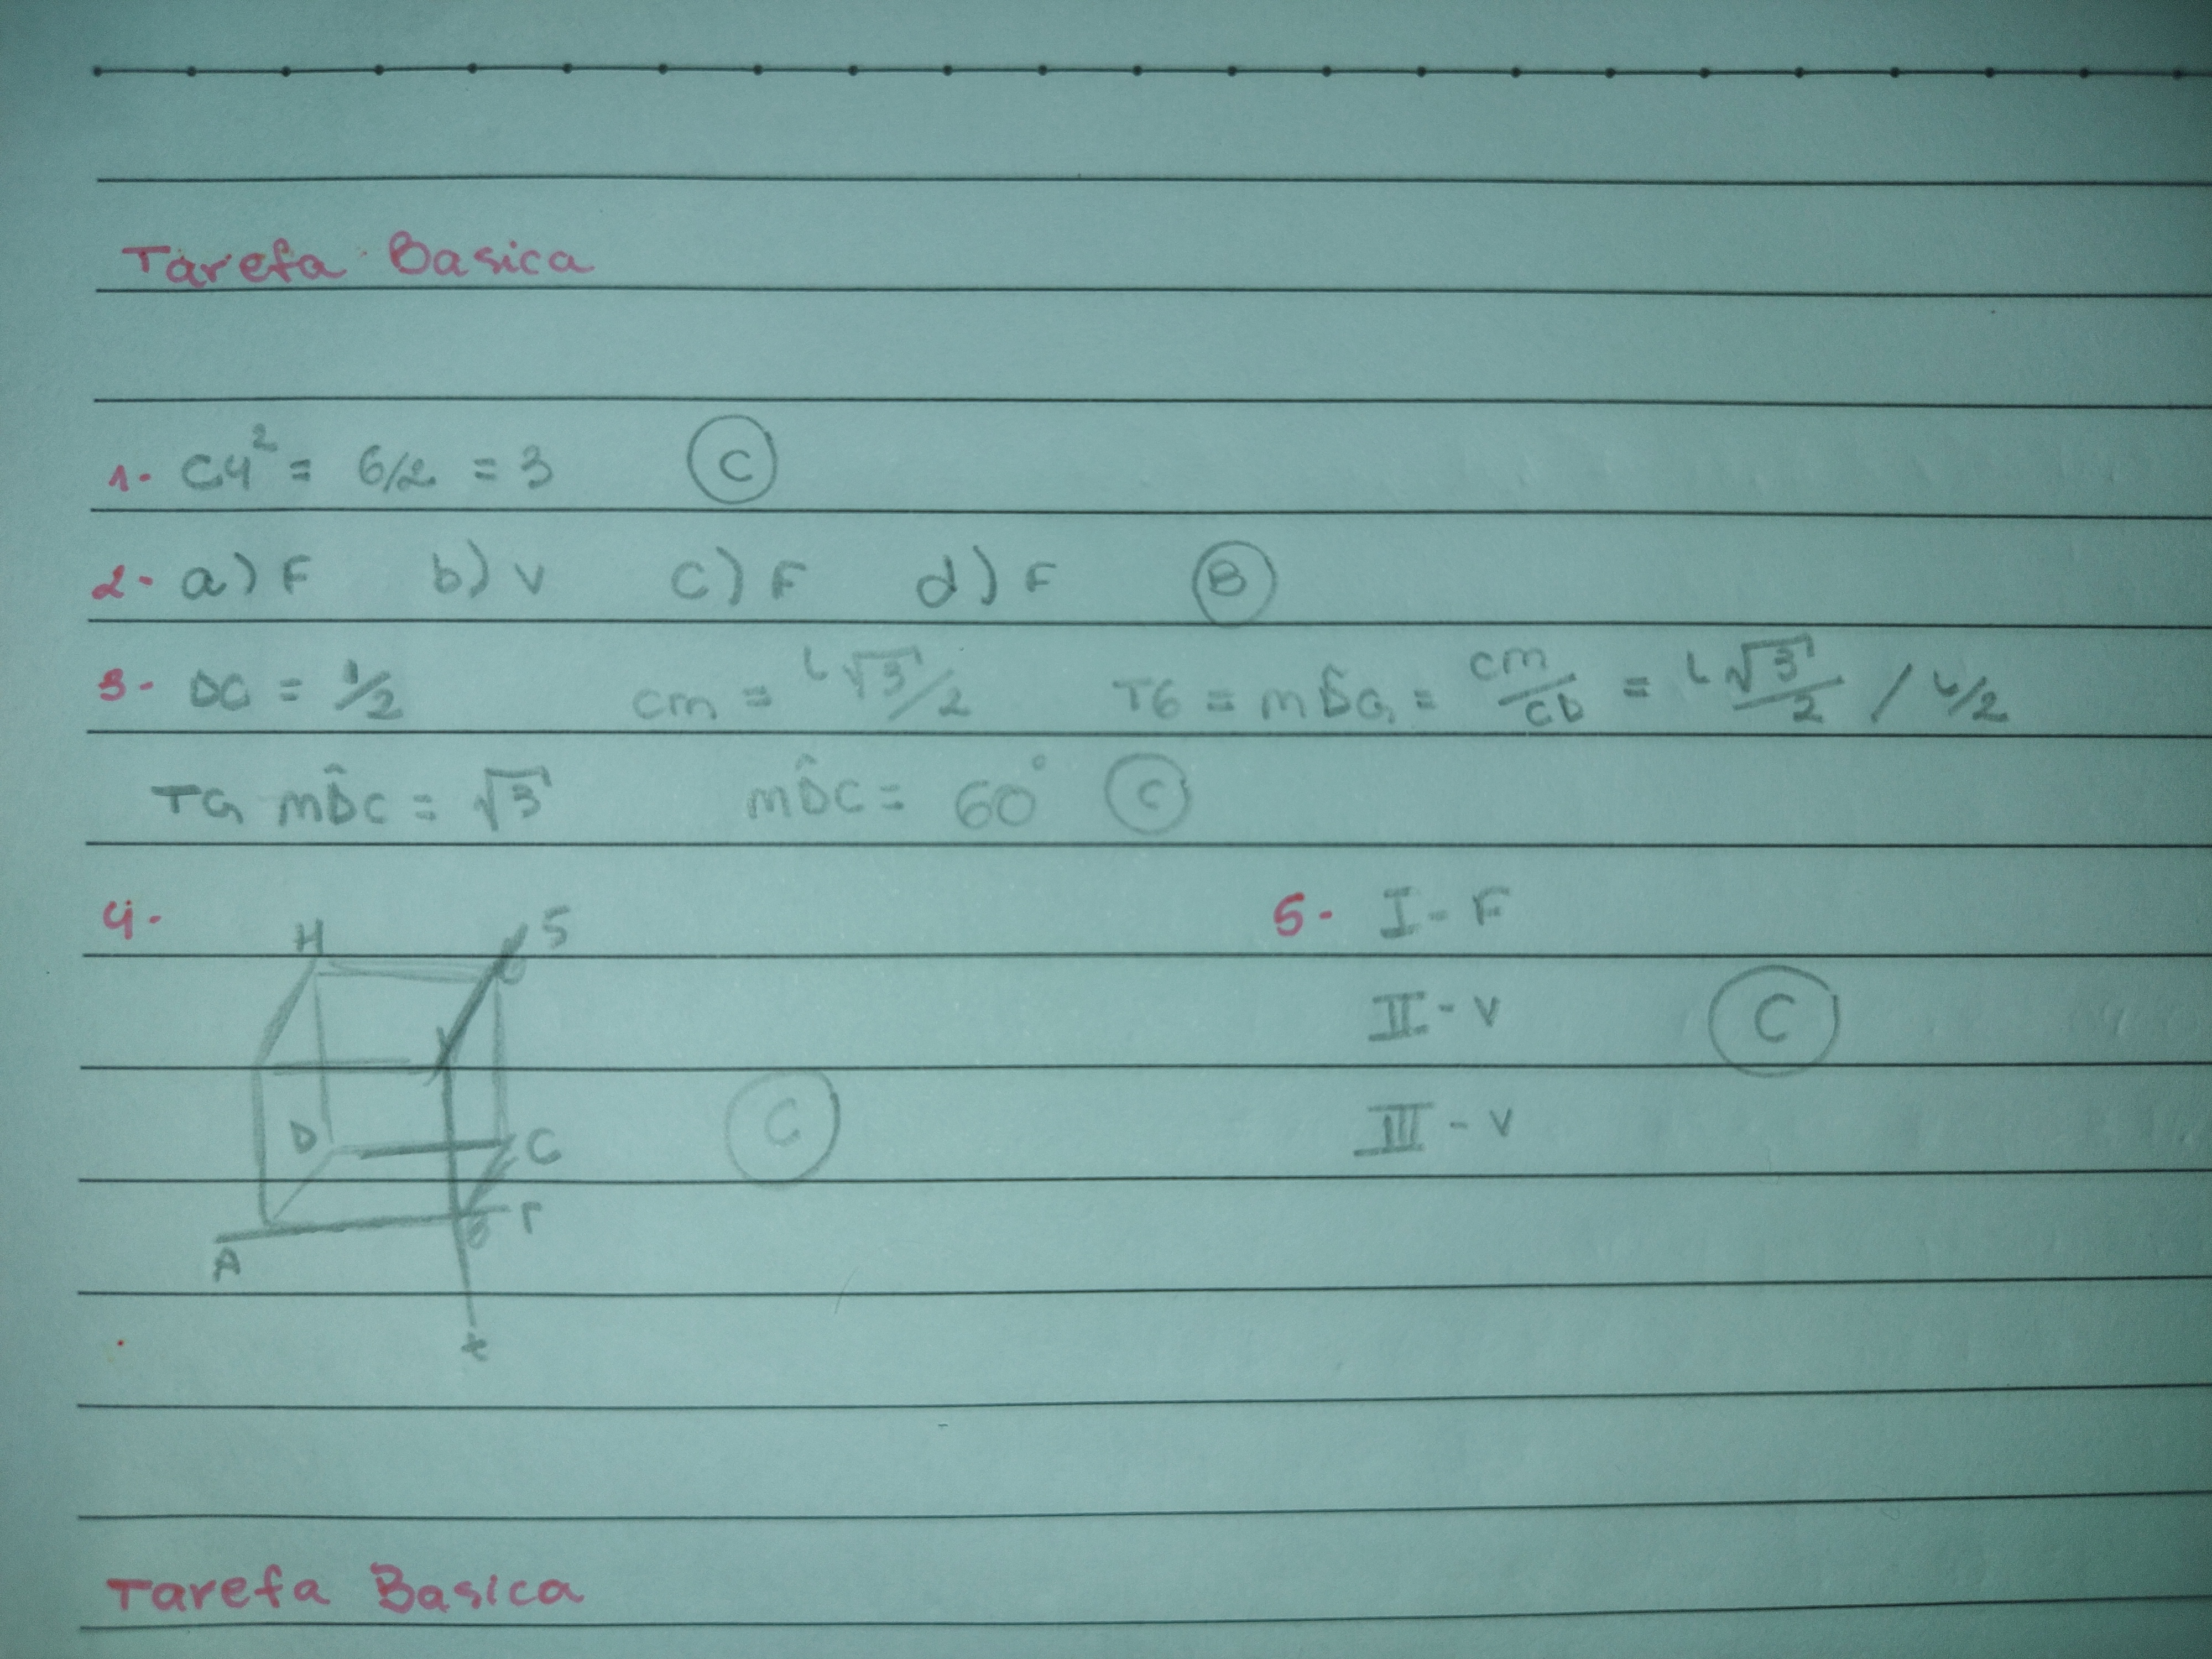 Tarefa Basica
1- C4² = 6/2 = 3 C
2- a) F b) V C) F d) F B
3- DG = 1/2 cm = L√3/2 TG = mD̂G = cm/CD = L√3/2 / L/2
TG mD̂C = √3 mD̂C = 60° C
4-
H S
D C
B r
A
t
C
5- I - F
II - V C
III - V
Tarefa Basica